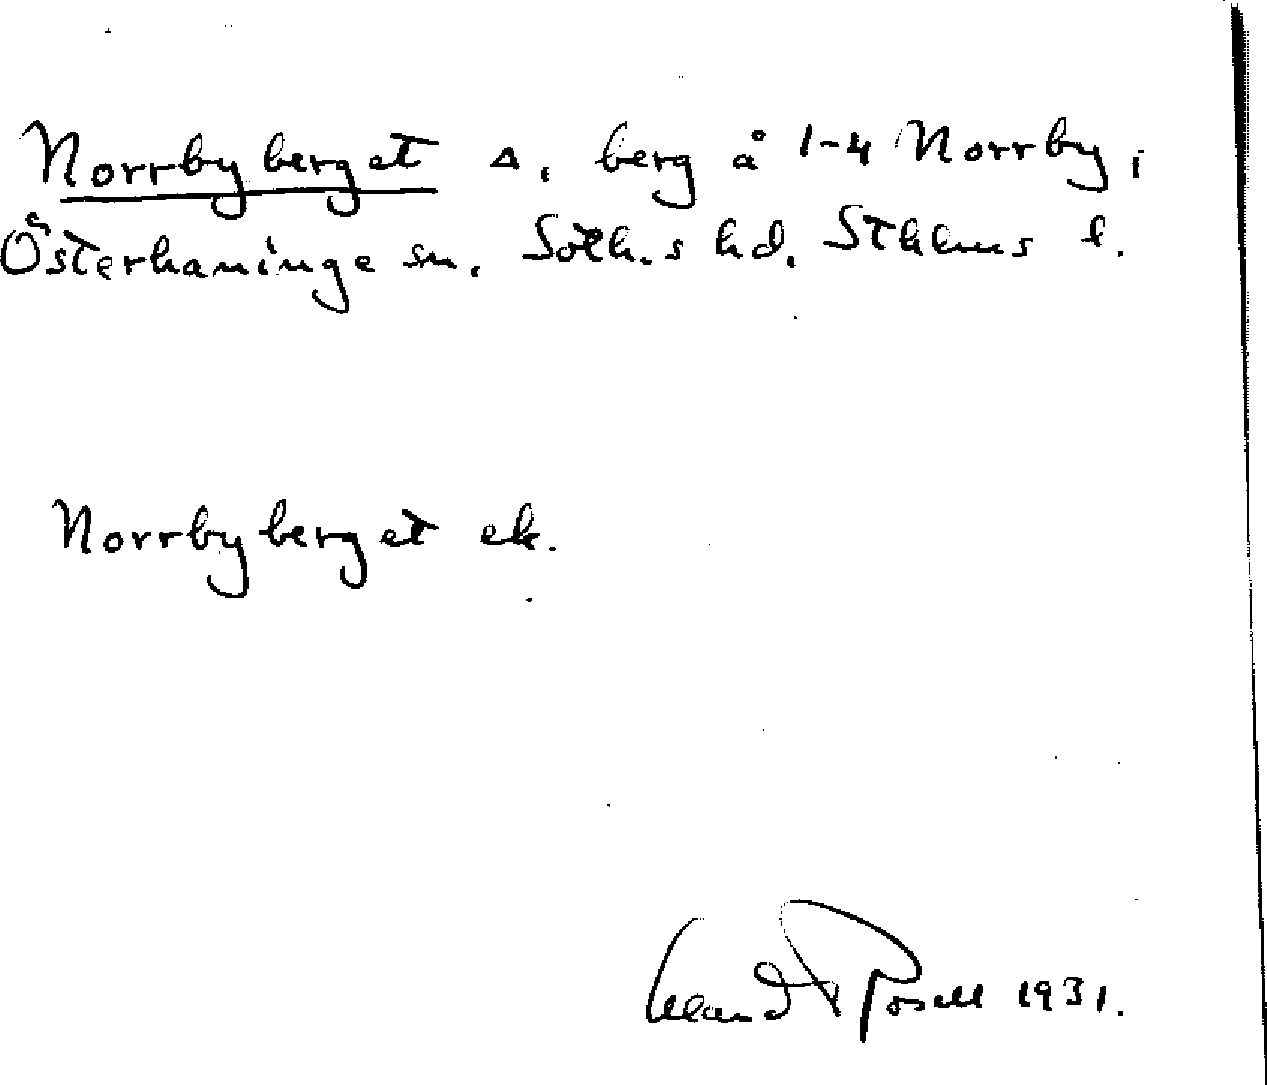 Norrbyberget △, berg å 1-4 Norrby,
Österhaninge sn. Soth.s hd. Sthlms l.
Norrbyberget ek.
1931.